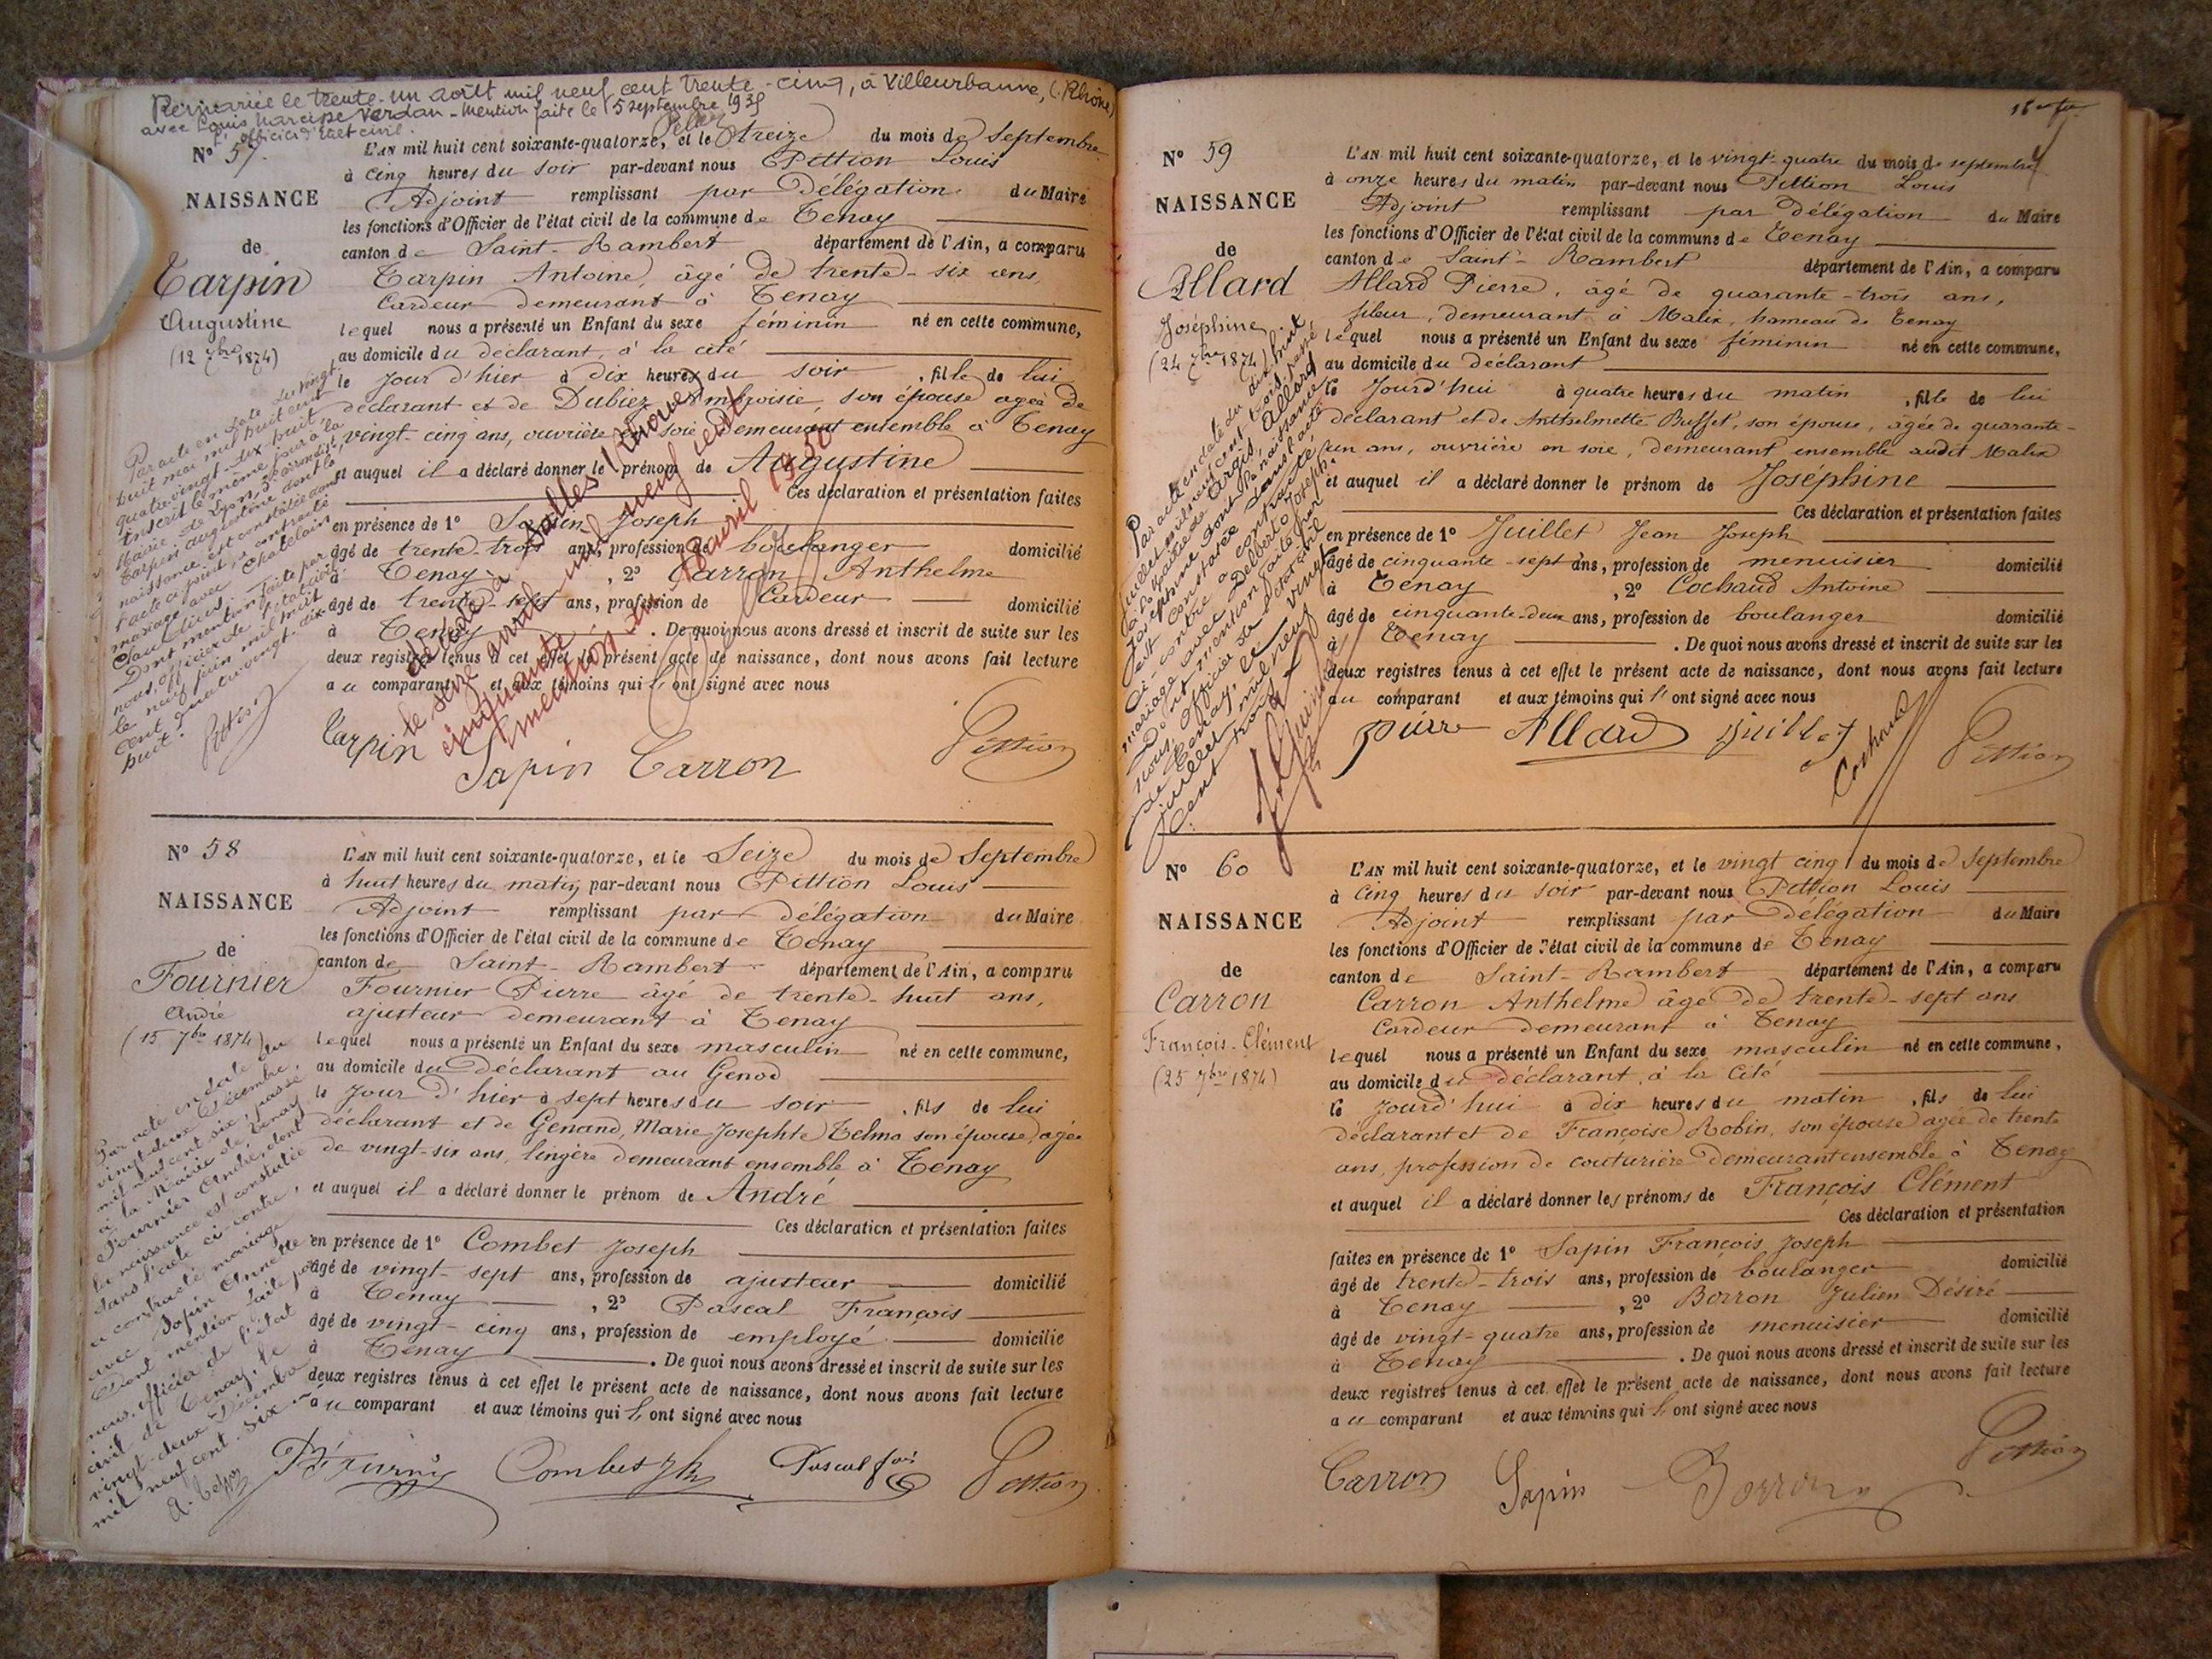 Remariée le trente-un août mil neuf cent trente-cinq, à Villeurbanne, (Rhône)
avec Louis Narcisse Verdan - Mention faite le 5 septembre 1935
l'officier d'état civil.
N° 57.
NAISSANCE
de
Tarpin
Augustine
(12 7bre 1874)
Par acte en date du vingt
huit mai mil huit cent
quatre vingt-dix huit,
inscrit le même jour à la
Mairie de Lyon, 3e arrondist
Tarpin Augustine dont la
naissance est constatée dans
l'acte ci-joint, a contracté
mariage avec Chatelain
Claudius.
Dont mention faite par
nous, officier de l'état civil
le neuf juin mil huit
cent quatre vingt-dix
huit.
L'AN mil huit cent soixante-quatorze, et le treize du mois de Septembre
à Cinq heures du soir par-devant nous Pittion Louis
Adjoint remplissant par Délégation du Maire
les fonctions d'Officier de l'état civil de la commune de Tenay
canton de Saint-Rambert département de l'Ain, a comparu
Tarpin Antoine, âgé de trente-six ans,
Cardeur demeurant à Tenay
lequel nous a présenté un Enfant du sexe féminin né en cette commune,
au domicile du déclarant, à la cité
le Jour d'hier à dix heures du soir, fille de lui
déclarant et de Dubiez Ambroisie, son épouse agée de
vingt-cinq ans, ouvrière soie demeurant ensemble à Tenay
et auquel il a déclaré donner le prénom de Augustine
Ces déclaration et présentation faites
en présence de 1° Sapin Joseph
âgé de trente-trois ans, profession de boulanger domicilié
à Tenay, 2° Carron Anthelme
âgé de trente-sept ans, profession de Cardeur domicilié
à Tenay. De quoi nous avons dressé et inscrit de suite sur les
deux registres tenus à cet effet le présent acte de naissance, dont nous avons fait lecture
au comparant et aux témoins qui l'ont signé avec nous
décédée à Salles (Rhône)
le seize avril mil neuf cent
cinquante
mention du 18 avril 1950
Tarpin
Sapin Carron
Pittion
N° 58
NAISSANCE
de
Fournier
André
(15 7bre 1874)
Par acte en date du
vingt-deux Décembre,
mil neuf cent six, passé
à la Mairie de Tenay
Fournier André, dont
la naissance est constatée
dans l'acte ci-contre,
a contracté mariage
avec Sapin Annette
Dont mention faite par
nous, officier de l'état
civil de Tenay, le
vingt-deux Décembre
mil neuf cent six
L'AN mil huit cent soixante-quatorze, et le Seize du mois de Septembre
à huit heures du matin par-devant nous Pittion Louis
Adjoint remplissant par délégation du Maire
les fonctions d'Officier de l'état civil de la commune de Tenay
canton de Saint-Rambert département de l'Ain, a comparu
Fournier Pierre âgé de trente-huit ans,
ajusteur demeurant à Tenay
lequel nous a présenté un Enfant du sexe masculin né en cette commune,
au domicile du Déclarant au Genod
le Jour d'hier à sept heures du soir, fils de lui
déclarant et de Genand, Marie Josephte Telma son épouse, agée
de vingt-six ans, lingère demeurant ensemble à Tenay
et auquel il a déclaré donner le prénom de André
Ces déclaration et présentation faites
en présence de 1° Combet Joseph
âgé de vingt-sept ans, profession de ajusteur domicilié
à Tenay, 2° Pascal François
âgé de vingt-cinq ans, profession de employé domicilié
à Tenay. De quoi nous avons dressé et inscrit de suite sur les
deux registres tenus à cet effet le présent acte de naissance, dont nous avons fait lecture
au comparant et aux témoins qui l'ont signé avec nous
Combet Jh Pascal fois Pittion
N° 59
NAISSANCE
de
Allard
Joséphine
(24 7bre 1874)
Par acte en date du dix huit
Juillet mil neuf cent trois, passé
à la Mairie de Argis, Allard
Joséphine dont la naissance
est constatée dans l'acte
ci-contre a contracté
mariage avec Delberto Joseph.
Dont mention faite par
nous, Officier de l'état civil
de Tenay, le vingt
juillet mil neuf
cent trois
L'AN mil huit cent soixante-quatorze, et le vingt-quatre du mois de septembre
à onze heures du matin par-devant nous Pittion Louis
Adjoint remplissant par Délégation du Maire
les fonctions d'Officier de l'état civil de la commune de Tenay
canton de Saint-Rambert département de l'Ain, a comparu
Allard Pierre, âgé de quarante-trois ans,
fileur, demeurant à Malix, hameau de Tenay
lequel nous a présenté un Enfant du sexe féminin né en cette commune,
au domicile du déclarant
le Jourd'hui à quatre heures du matin, fille de lui
déclarant et de Anthelmette Buffet, son épouse, âgée de quarante-
un ans, ouvrière en soie, demeurant ensemble audit Malix
et auquel il a déclaré donner le prénom de Joséphine
Ces déclaration et présentation faites
en présence de 1° Juillet Jean Joseph
âgé de cinquante-sept ans, profession de menuisier domicilié
à Tenay, 2° Cochaud Antoine
âgé de cinquante-deux ans, profession de boulanger domicilié
à Tenay. De quoi nous avons dressé et inscrit de suite sur les
deux registres tenus à cet effet le présent acte de naissance, dont nous avons fait lecture
au comparant et aux témoins qui l'ont signé avec nous
pierre Allard Juillet Cochaud Pittion
N° 60
NAISSANCE
de
Carron
François-Clément
(25 7bre 1874)
L'AN mil huit cent soixante-quatorze, et le vingt cinq du mois de Septembre
à Cinq heures du soir par-devant nous Pittion Louis
Adjoint remplissant par Délégation du Maire
les fonctions d'Officier de l'état civil de la commune de Tenay
canton de Saint-Rambert département de l'Ain, a comparu
Carron Anthelme âgé de trente-sept ans
Cardeur demeurant à Tenay
lequel nous a présenté un Enfant du sexe masculin né en cette commune,
au domicile du Déclarant, à la Cité
le Jourd'hui à dix heures du matin, fils de lui
déclarant et de Françoise Robin, son épouse agée de trente
ans, profession de couturière demeurant ensemble à Tenay
et auquel il a déclaré donner les prénoms de François Clément
Ces déclaration et présentation
faites en présence de 1° Sapin François Joseph
âgé de trente-trois ans, profession de boulanger domicilié
à Tenay, 2° Borron Julien Désiré
âgé de vingt-quatre ans, profession de menuisier domicilié
à Tenay. De quoi nous avons dressé et inscrit de suite sur les
deux registres tenus à cet effet le présent acte de naissance, dont nous avons fait lecture
au comparant et aux témoins qui l'ont signé avec nous
Carron Sapin Borron Pittion